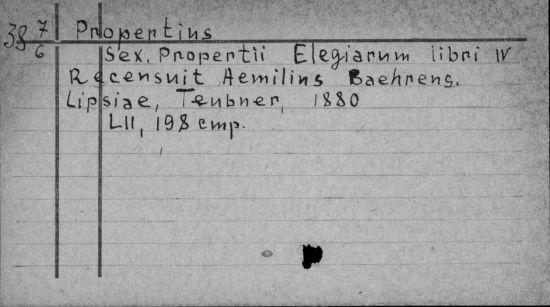 38 7/6 Propertius
Sex. Propertii Elegiarum libri IV
Recensuit Aemilius Baehrens.
Lipsiae, Teubner, 1880
LII, 198 стр.